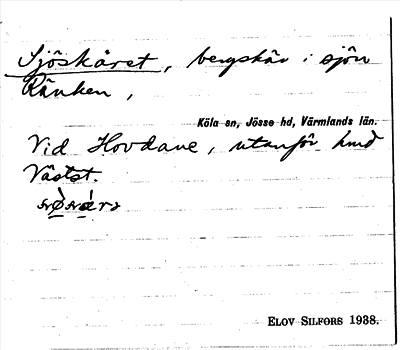 Sjöskäret, bergskär i sjön
Ränken,
Köla sn, Jösse hd, Värmlands län.
Vid Hovdane, utanför hmd
Västst.
ELOV SILFORS 1938.